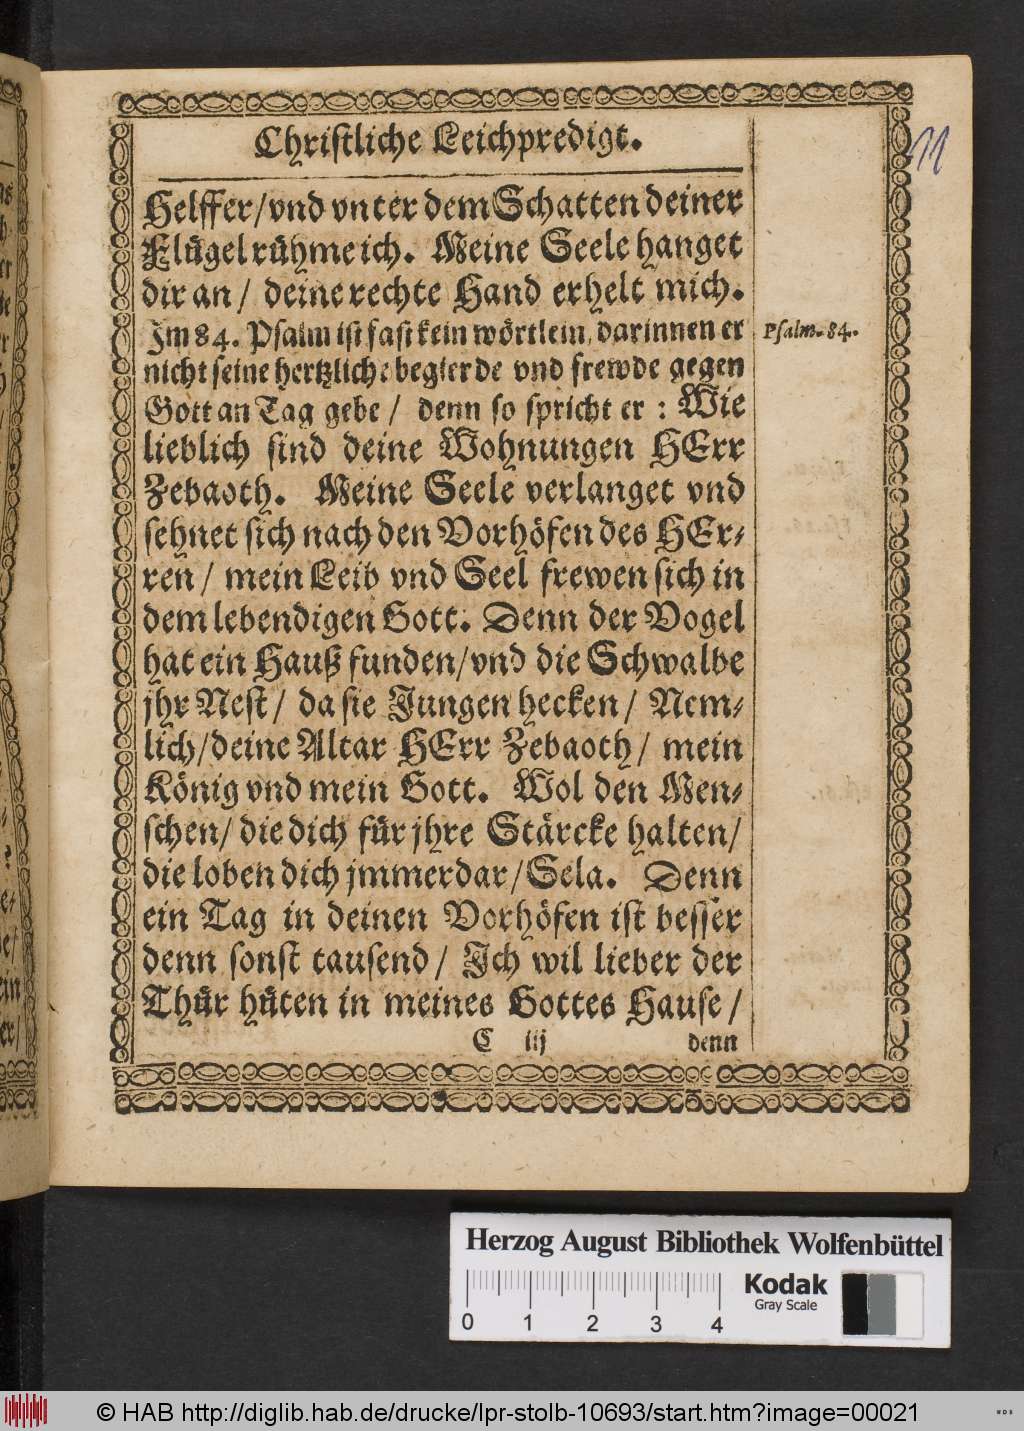 Christliche Leichpredigt.
11
Helffer/vnd vnter dem Schatten deiner
Flügel rühme ich. Meine Seele hanget
dir an/ deine rechte Hand erhelt mich.
Im 84. Psalm ist fast kein wörtlein, darinnen er
Psalm. 84.
nicht seine hertzliche begierde vnd frewde gegen
Gott an Tag gebe/ denn so spricht er: Wie
lieblich sind deine Wohnungen HErr
Zebaoth. Meine Seele verlanget vnd
sehnet sich nach den Vorhöfen des HEr-
ren/ mein Leib vnd Seel frewen sich in
dem lebendigen Gott. Denn der Vogel
hat ein Hauß funden/vnd die Schwalbe
jhr Nest/ da sie Jungen hecken/ Nem-
lich/deine Altar HErr Zebaoth/ mein
König vnd mein Gott. Wol den Men-
schen/ die dich für jhre Stärcke halten/
die loben dich jmmerdar/Sela. Denn
ein Tag in deinen Vorhöfen ist besser
denn sonst tausend/ Ich wil lieber der
Thür hüten in meines Gottes Hause/
C iij denn
Herzog August Bibliothek Wolfenbüttel
Kodak
Gray Scale
0 1 2 3 4
© HAB http://diglib.hab.de/drucke/lpr-stolb-10693/start.htm?image=00021